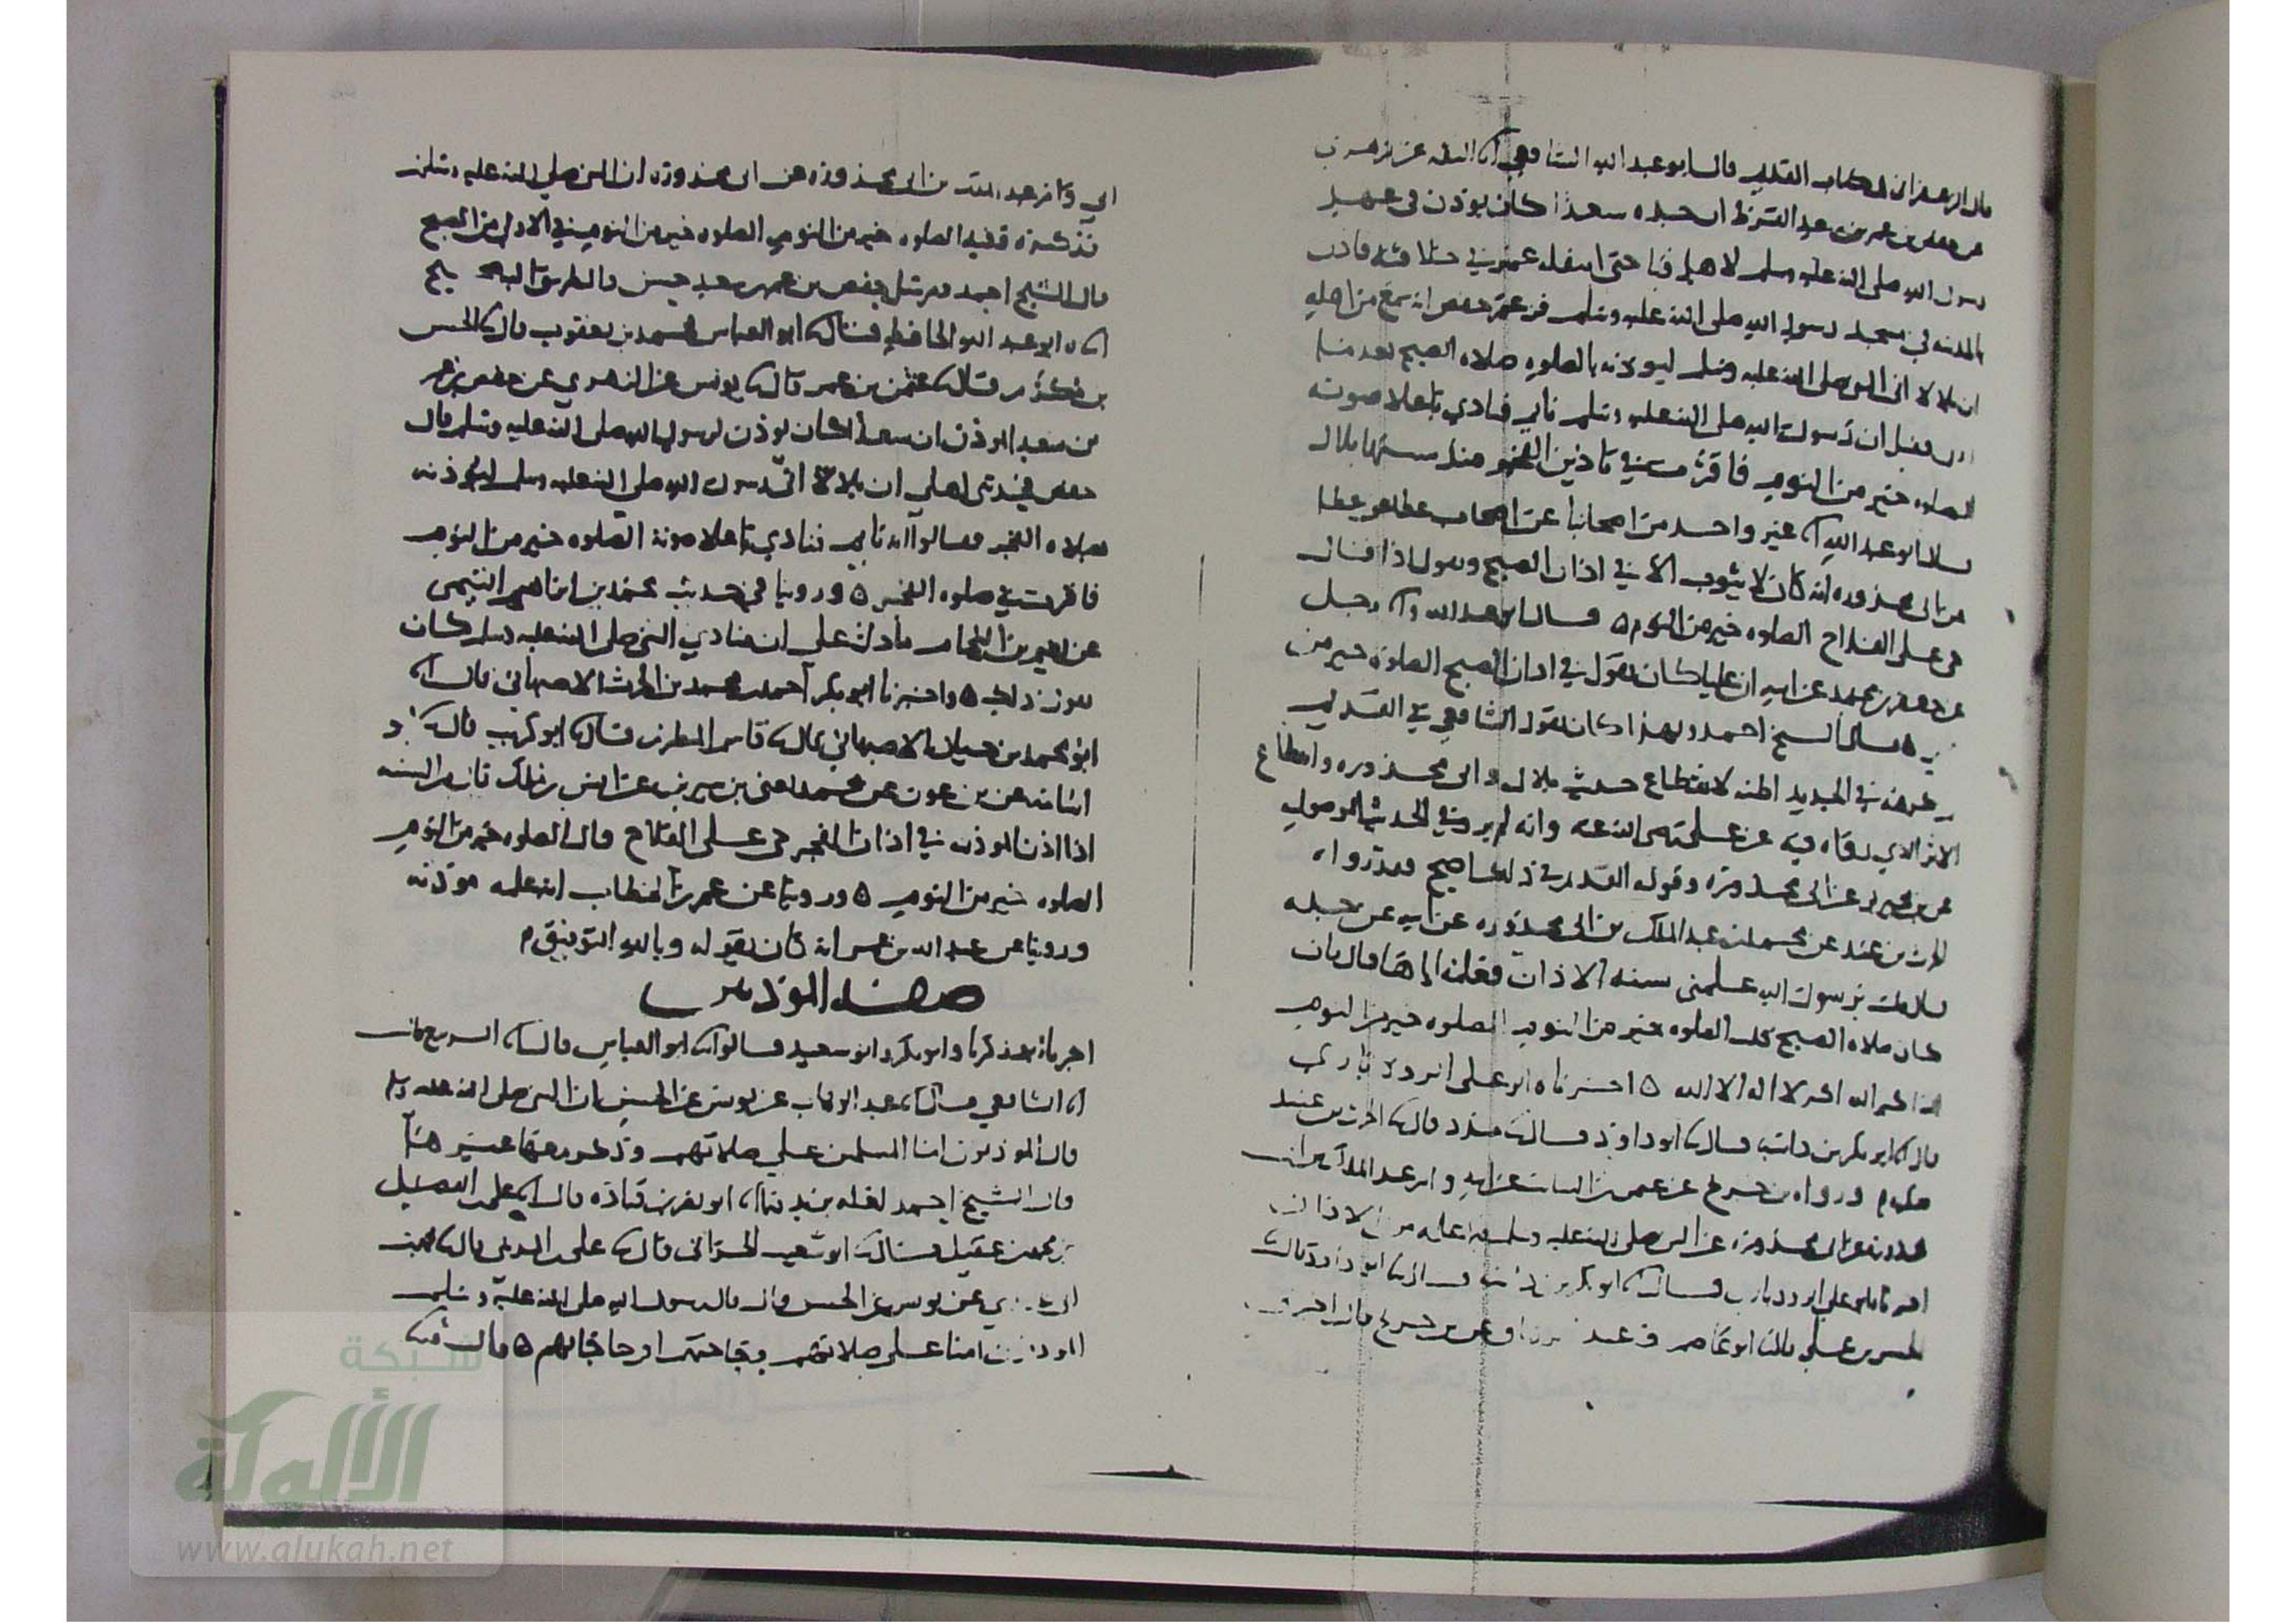 قال الزعفراني في كتاب القديم قال ابو عبد الله الشافعي انا الثقه عن الزهري
عن حفص بن عمر بن سعد القرظ ان جده سعدا كان يوذن في عهد
رسول الله صلى الله عليه وسلم لاهل قبا حتى انتقله عمر في خلافته فاذن
بالمدينه في مسجد رسول الله صلى الله عليه وسلم فزعم حفص انه سمع من اهله
ان بلالا اتى النبي صلى الله عليه وسلم ليوذنه بالصلوه صلاه الصبح بعدما
اذن فقيل ان رسول الله صلى الله عليه وسلم نايم فنادي باعلا صوته
الصلوه خير من النوم فاقرت في تاذين الفجر منذ سنها بلال
قال ابو عبد الله انا غير واحد من اصحابنا عن اصحاب عطا عن عطا
عن ابي محذوره انه كان لا يثوب الا في اذان الصبح ويقول اذا قال
حي على الفلاح الصلوه خير من النوم ٥ قال ابو عبد الله وانا رجل
عن جعفر بن محمد عن ابيه ان عليا كان يقول في اذان الصبح الصلوه خير من
النوم ٥ قال الشيخ احمد وبهذا كان يقول الشافعي في القديم
في الجديد اظنه لانقطاع حديث بلال وابي محذوره وانقطاع
الاثر الذي رواه فيه عن علي رضي الله عنه وانه لم يرو في الحديث الموصول
عن بن محيريز عن ابي محذوره وقوله القديم في ذلك اصح فقد رواه
الحرث بن عبيد عن محمد بن عبد الملك بن ابي محذوره عن ابيه عن جده
قال قلت يرسول الله علمني سنه الاذان فعلمه اياها قال فان
كان صلاه الصبح قلت الصلوه خير من النوم الصلوه خير من النوم
الله اكبر الله اكبر لا اله الا الله ٥ اخبرناه ابو على الروذباري
قال انا ابو بكر بن داسه قال نا ابو داود قال نا مسدد قال نا الحرث بن عبيد
ورواه بن جريج عن عثمن بن السائب عن ابيه وام عبد الملك بن ابي
محذوره عن ابي محذوره عن النبي صلى الله عليه وسلم فيما علمه من الاذان
اخبرنا ابو علي الروذباري قال انا ابو بكر بن داسه قال نا ابو داود قال نا
الحسن بن علي قال نا ابو عاصم وعبد الرزاق عن بن جريج قال اخبرني
ابي وام عبد الملك بن ابي محذوره عن ابي محذوره ان النبي صلى الله عليه وسلم
فذكره وفيه الصلوه خير من النوم الصلوه خير من النوم في الاول من الصبح
قال الشيخ احمد مرسل حفص بن عمر بن سعد حسن والطريق اليه صحيح
انا ابو عبد الله الحافظ قال نا ابو العباس محمد بن يعقوب قال نا الحسن
بن مكرم قال نا عثمن بن عمر قال نا يونس عن الزهري عن حفص بن عمر
بن سعد الموذن ان سعدا كان يوذن لرسول الله صلى الله عليه وسلم قال
حفص فحدثني اهلي ان بلالا اتى رسول الله صلى الله عليه وسلم ليوذنه
بصلاه الفجر فقالوا انه نايم فنادي باعلا صوته الصلوه خير من النوم
فاقرت في صلوه الفجر ٥ وروينا في حديث محمد بن ابراهيم التيمي
عن نعيم بن النحام ما دل على ان منادي النبي صلى الله عليه وسلم كان
يقول ذلك ٥ واخبرنا ابو بكر احمد بن محمد بن الحرث الاصبهاني قال انا
ابو محمد بن حيان الاصبهاني قال نا قاسم المطرز قال نا ابو كريب قال نا ابو
اسامه عن بن عون عن محمد يعني بن سيرين عن انس بن مالك قال من السنه
اذا اذن الموذن في اذان الفجر حي على الفلاح قال الصلوه خير من النوم
الصلوه خير من النوم ٥ وروينا عن عمر بن الخطاب انه علمه موذنه
وروينا عن عبد الله بن عمر انه كان يقوله وبالله التوفيق
صفه الموذنين
اخبرنا ابو زكريا وابو بكر وابو سعيد قالوا نا ابو العباس قال نا الربيع قال
انا الشافعي قال انا عبد الوهاب عن يونس عن الحسن ان النبي صلى الله عليه وسلم
قال الموذنون امنا المسلمين على صلاتهم وذكر معها غيرها
قال الشيخ احمد لعله يريد ما انا ابو نصر بن قتاده قال انا علي بن الفضل
بن محمد بن عقيل قال نا ابو شعيب الحراني قال نا على بن المديني قال نا محمد بن
ابي عدي عن يونس عن الحسن قال قال رسول الله صلى الله عليه وسلم
الموذنون امنا على صلاتهم وحاجتهم او حاجاتهم ٥ قال
شبكة
الألوكة
www.alukah.net